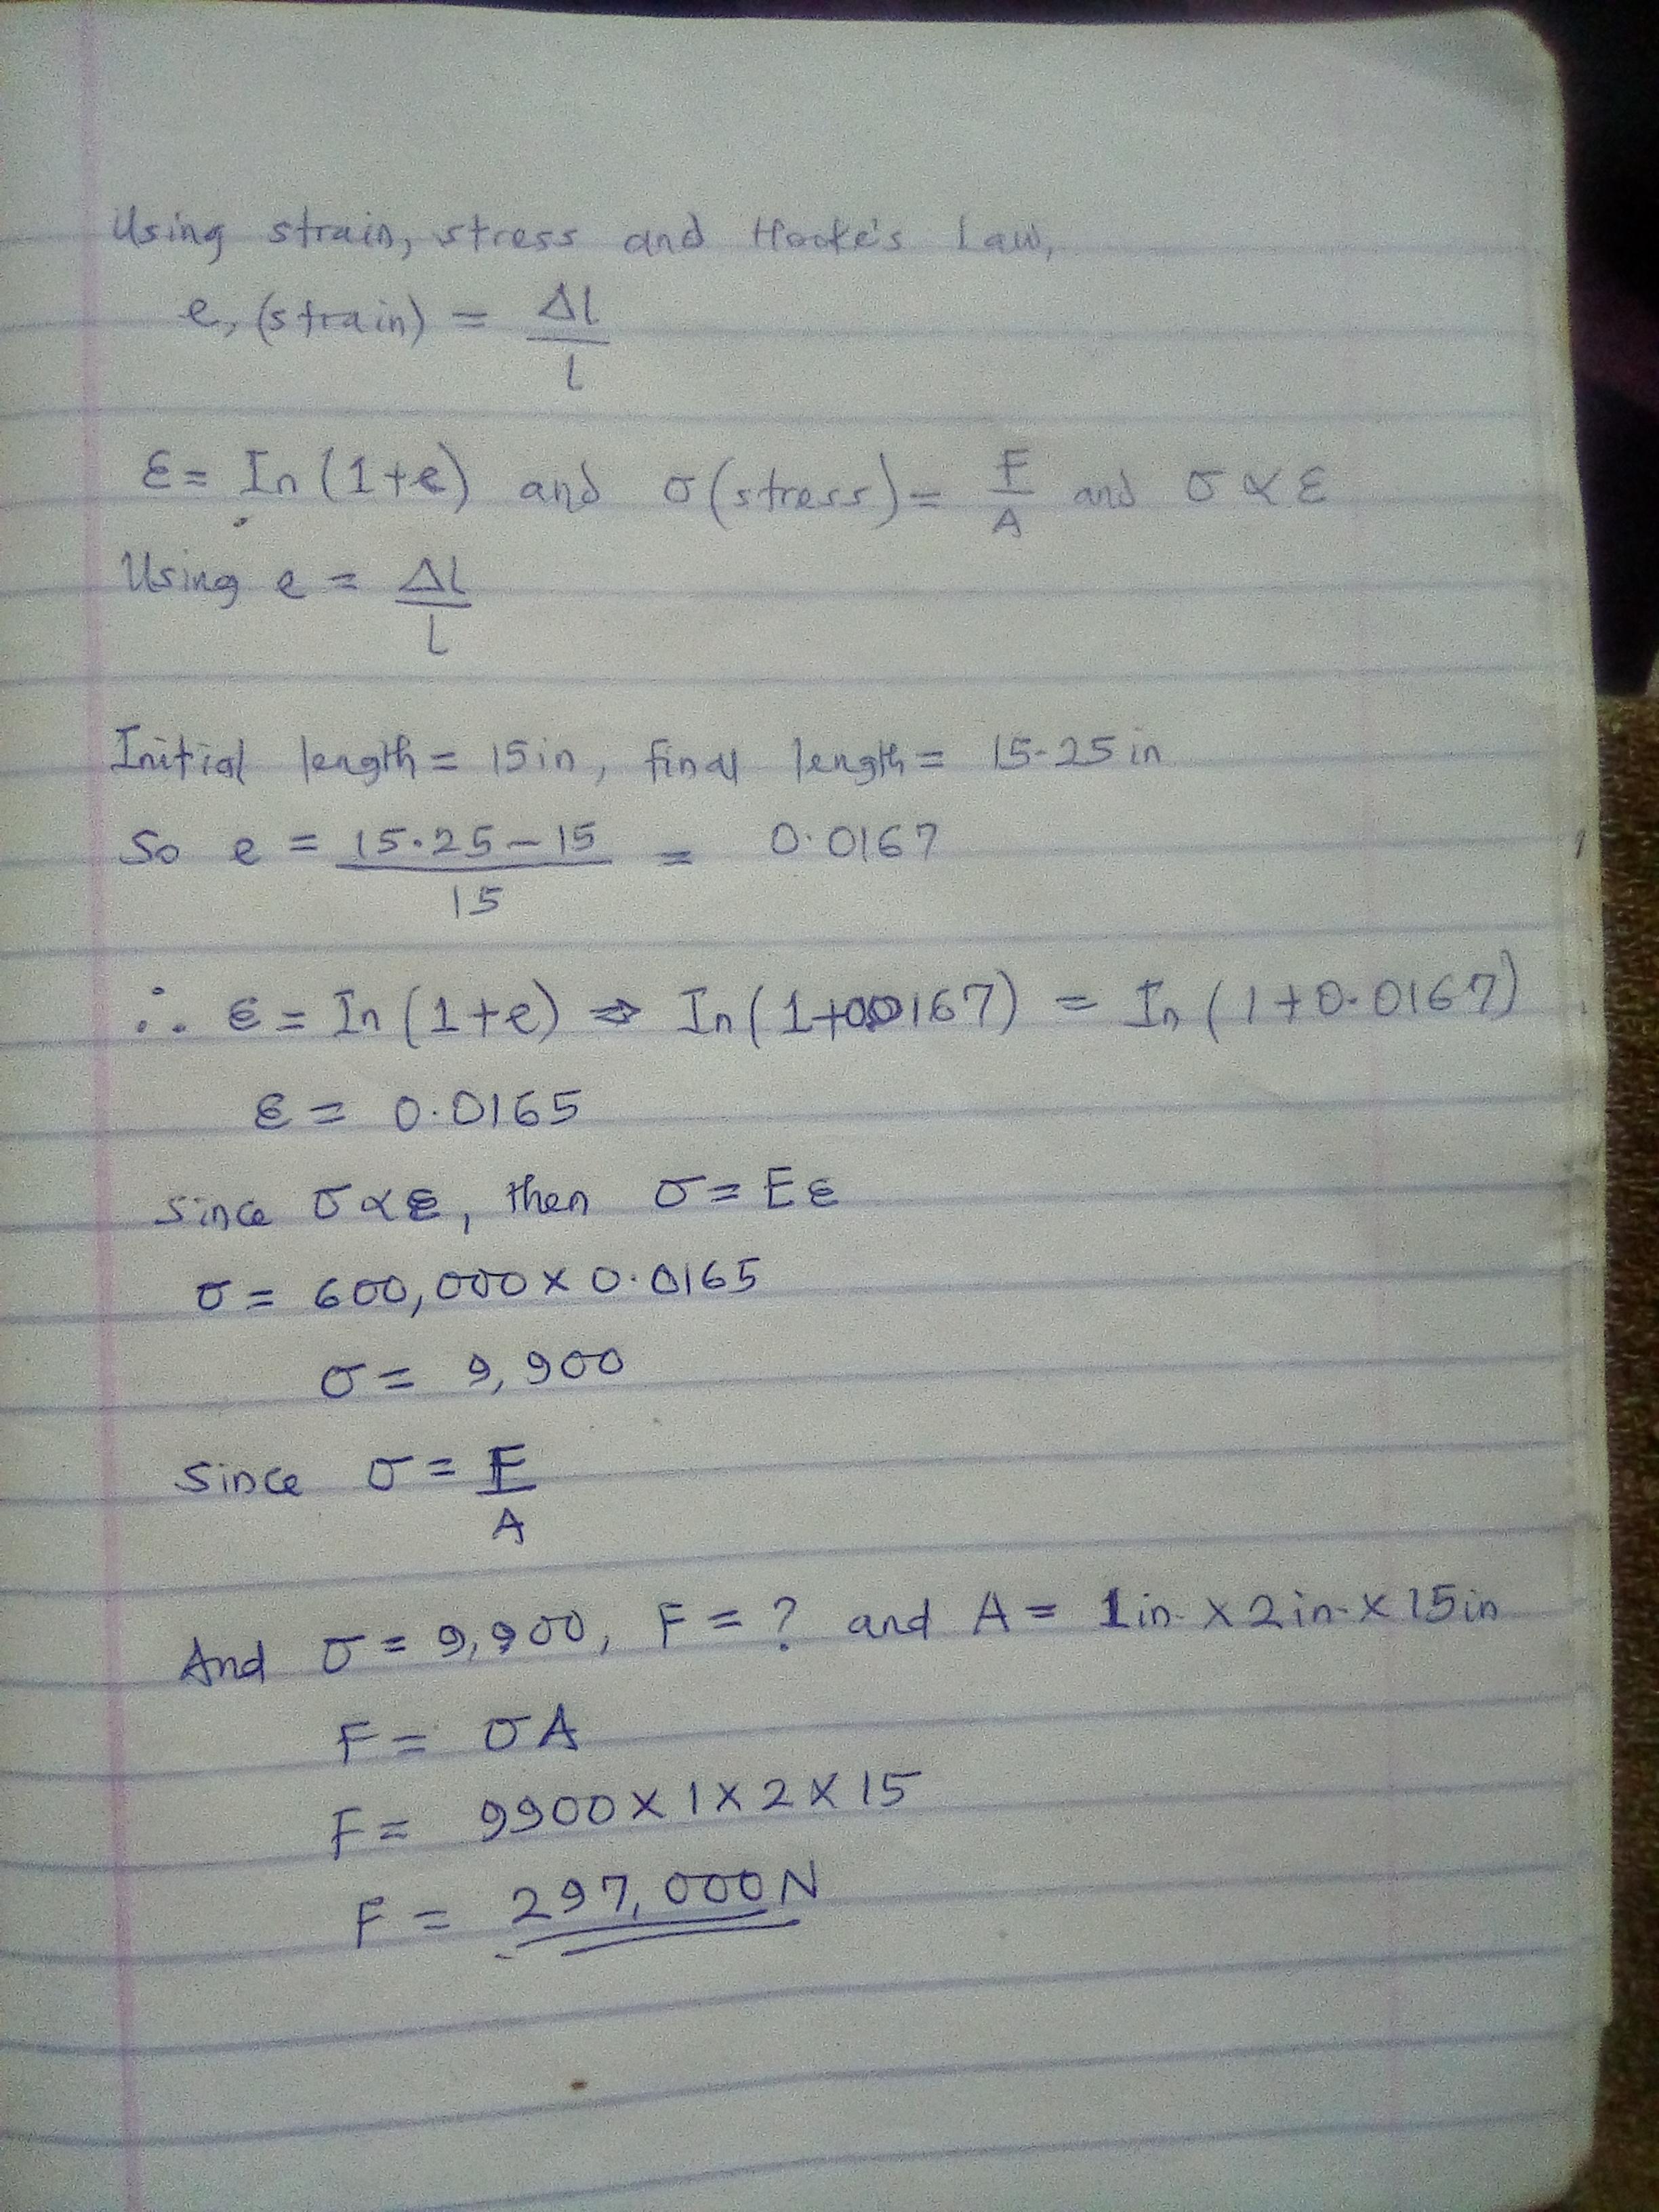 Using strain, stress and Hooke's Law,
e, (strain) = Δl / l
ε = In (1+e) and σ (stress) = F / A and σ ∝ ε
Using e = Δl / l
Initial length = 15in, final length = 15.25 in
So e = 15.25 - 15 / 15 = 0.0167
∴ ε = In (1+e) ⇒ In (1+0.0167) = In (1+0.0167)
ε = 0.0165
Since σ ∝ ε, then σ = Eε
σ = 600,000 × 0.0165
σ = 9,900
Since σ = F / A
And σ = 9,900, F = ? and A = 1in. × 2in. × 15in
F = σA
F = 9900 × 1 × 2 × 15
F = 297,000N